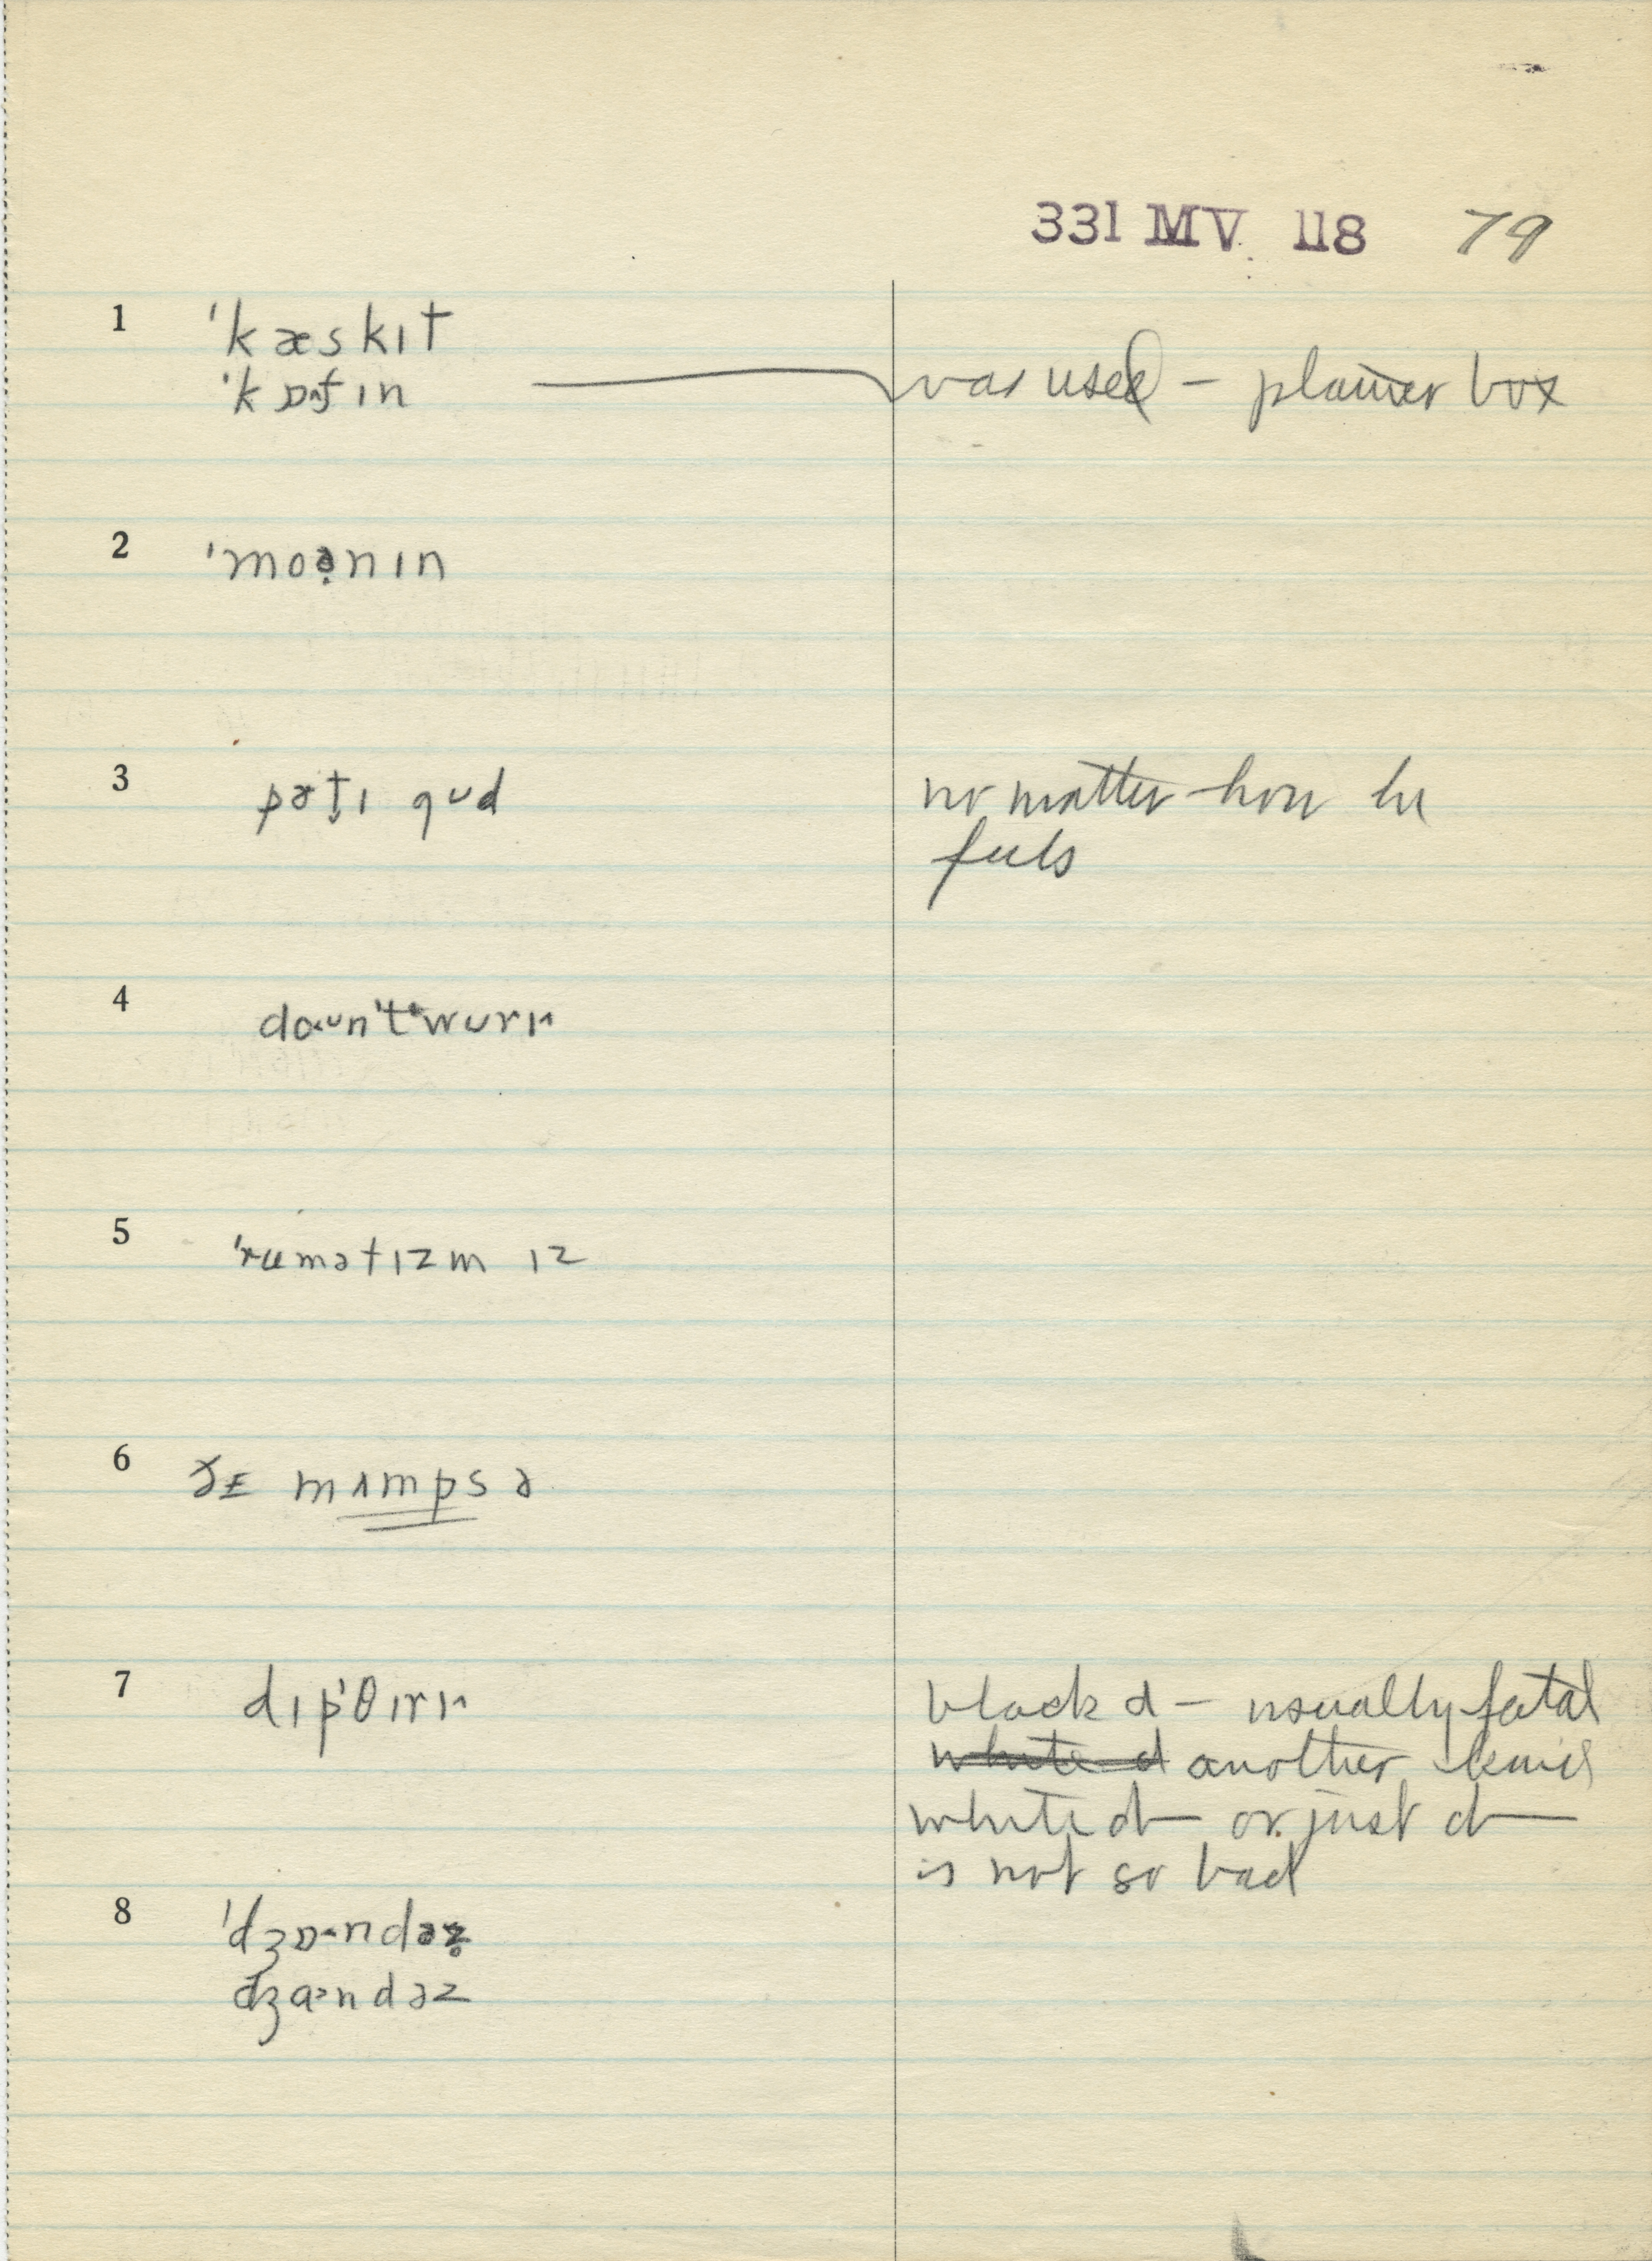 331 MV 118 79
1 ˈkæskɪt
ˈkɒ˄fɪn — was used — plainer box
2 ˈmoə̣nɪn
3 pɚt̬ɪ gʊd no matter how he
feels
4 doʊn't wʊrɪ˄
5 ˈrumətɪzm ɪz
6 ðɛ mʌmps ə
7 dɪp'θɪrɪ˄ black d — usually fatal
white d another kind
white d— or just d—
is not so bad
8 ˈdʒɒ˄ndəz̥
dʒɑ˃ndəz